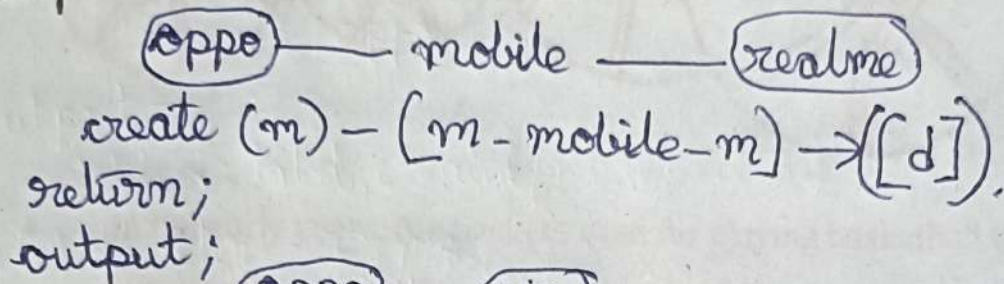 oppo — mobile — realme
create (m) - [m - mobile - m] → ([d]).
return;
output;
oppo